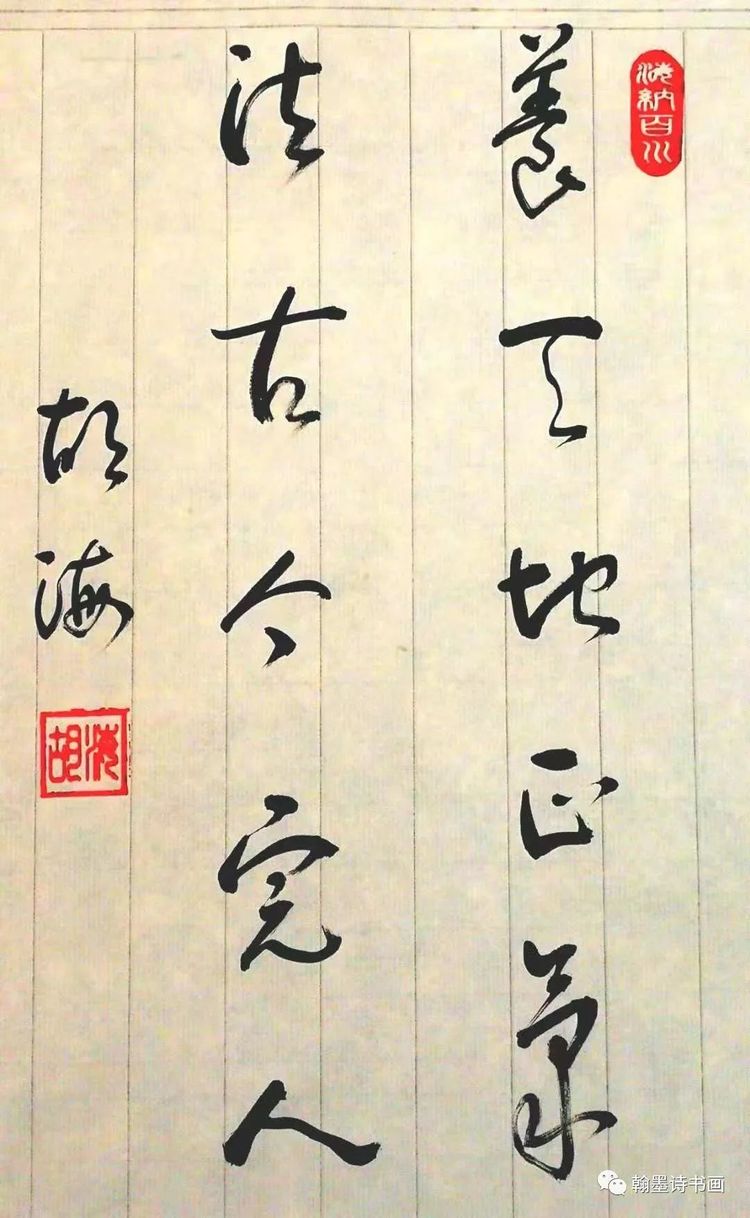 海纳百川
養天地正氣
法古今完人
胡海
胡海
翰墨诗书画